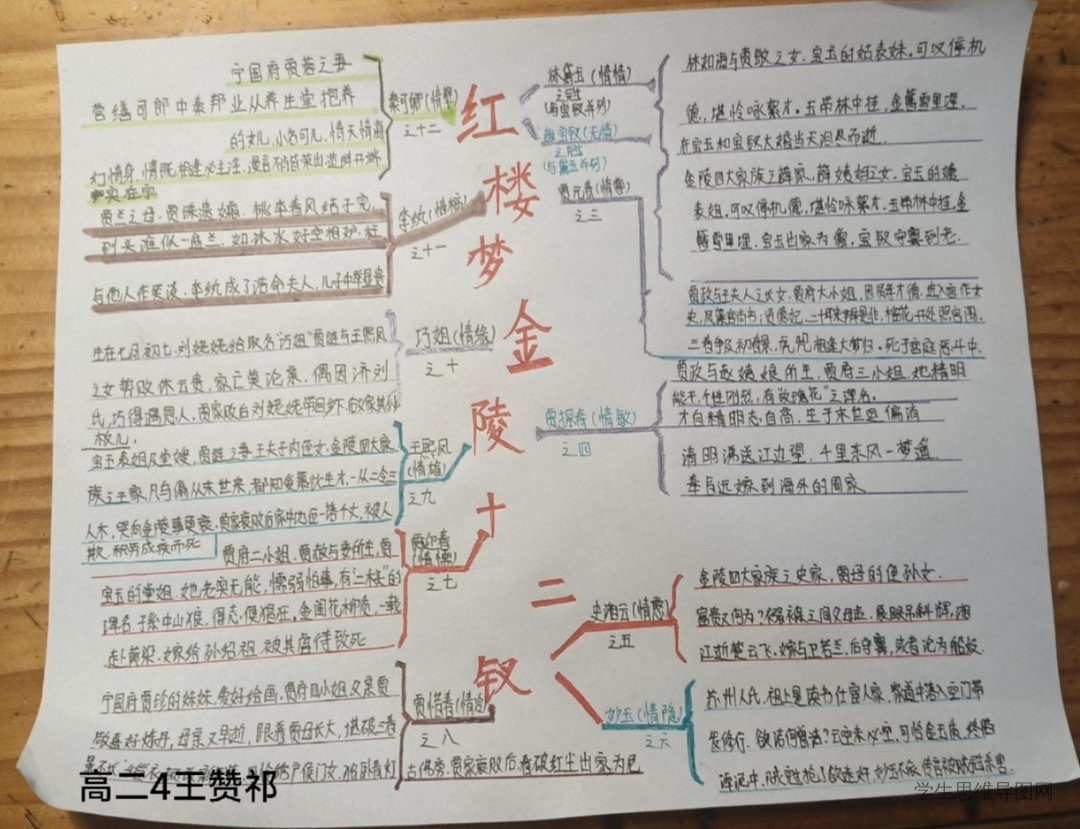 红楼梦金陵十二钗
林黛玉(情情)
之冠
(与宝钗并列)
林如海与贾敏之女,宝玉的姑表妹,可叹停机
德,堪怜咏絮才,玉带林中挂,金簪雪里埋,
在宝玉和宝钗大婚当天泪尽而逝.
薛宝钗(无情)
之冠
(与黛玉并列)
金陵四大家族之薛家,薛姨妈之女,宝玉的姨
表姐,可叹停机德,堪怜咏絮才,玉带林中挂,金
簪雪里埋.宝玉出家为僧,宝钗守寡到老.
贾元春
之三
贾政与王夫人之长女,贾府大小姐,因贤孝才德,选入宫作女
史,二十年来辨是非,榴花开处照宫闱,
三春争及初春景,虎兕相逢大梦归.死于宫庭恶斗中.
贾探春(情敏)
之四
贾政与赵姨娘所生,贾府三小姐,她精明
能干,个性刚烈,有"玫瑰花"之诨名.
才自精明志自高,生于末世运偏消
清明涕送江边望,千里东风一梦遥.
奉旨远嫁到海外的周家
史湘云(情憨)
之五
金陵四大家族之史家,贾母的侄孙女.
富贵又何为?襁褓之间父母违,展眼吊斜辉,湘
江逝楚云飞,嫁与卫若兰,后守寡,或者沦为船妓.
妙玉(情隐)
之六
苏州人氏,祖上是读书仕宦人家,家道中落入空门带
发修行,欲洁何曾洁?云空未必空,可怜金玉质,终陷
淖泥中.
秦可卿
之十二
宁国府贾蓉之妻
营缮司郎中秦邦业从养生堂抱养
的女儿,小名可儿,情天情海
幻情身,情既相逢必主淫,漫言不肖皆荣出造衅开端
实在宁
李纨
之十一
贾兰之母,贾珠遗孀.桃李春风结子完,
到头谁似一盆兰,如冰水好空相妒,枉
与他人作笑谈.李纨成了诰命夫人,儿子中年
巧姐(情缘)
之十
生在七月初七,刘姥姥给取名"巧姐"贾琏与王熙凤
之女势败休云贵,家亡莫论亲,偶因济刘
氏,巧得遇恩人,贾家败后刘姥姥带回乡下
板儿.
王熙凤
(情雄)
之九
宝玉表姐及堂嫂,贾琏之妻王夫子内侄女,金陵四大家
族之王家,凡鸟偏从末世来,都知爱慕此生才,一从二令三
人木,哭向金陵事更哀.贾家衰败后,被人
欺,积劳成疾而死
贾迎春
(情懦)
之七
贾府二小姐.贾赦与妾所生,贾
宝玉的堂姐.她老实无能,懦弱怕事,有"二木头"的
诨名.子系中山狼,得志便猖狂,金闺花柳质,一载
赴黄粱.嫁给孙绍祖,被其虐待致死
贾惜春(情冷)
之八
宁国府贾珍的妹妹,爱好绘画,贾府四小姐父亲贾
敬喜好炼丹,母亲又早逝,跟着贾母长大,堪破三春
绣户侯门女,独卧青灯
古佛旁.贾家衰败后,看破红尘出家为尼
高二4王赞祁
学生思维导图网